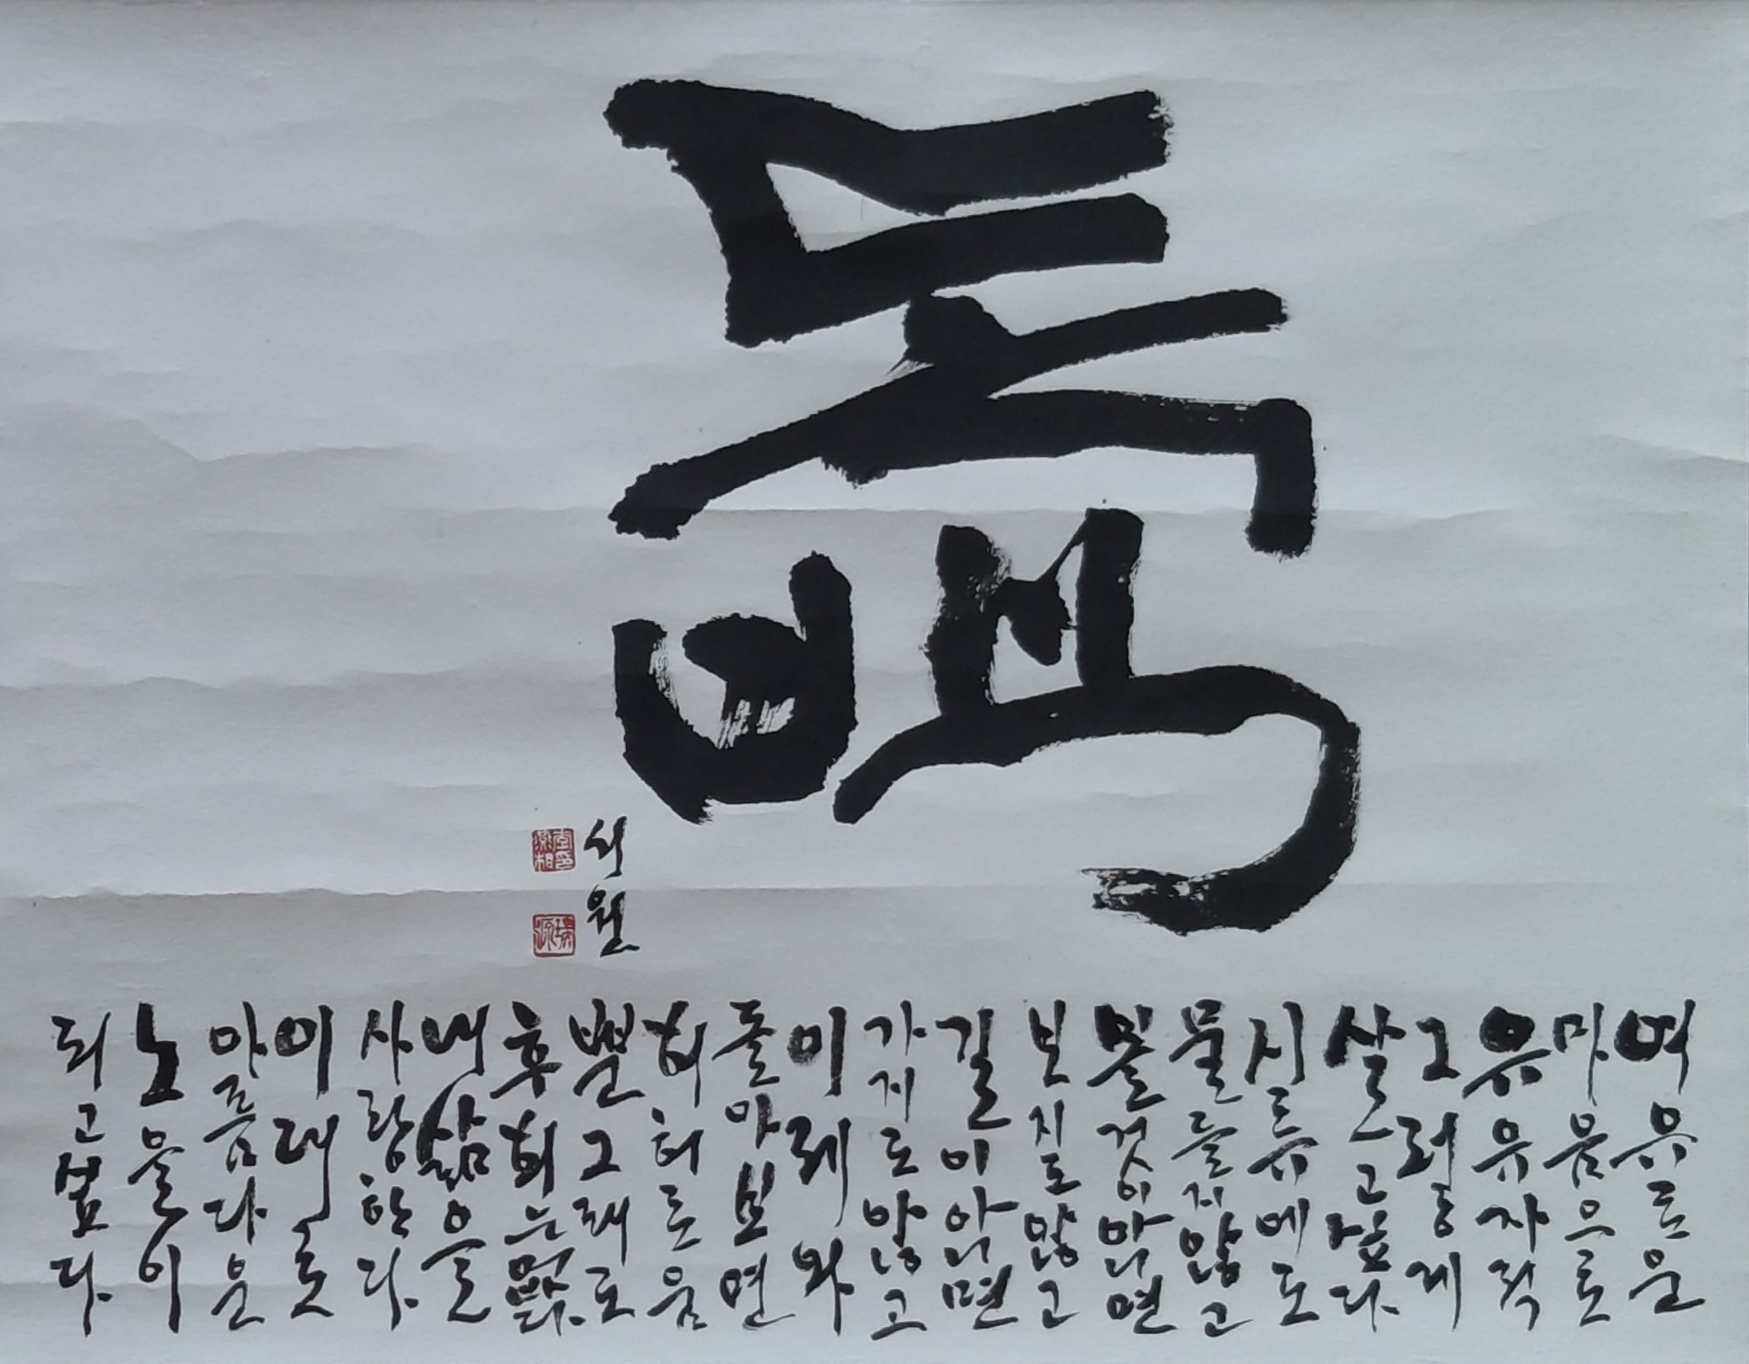 독백
여유로운
마음으로
유유자적
그렇게
살고싶다
시류에도
물들지않고
볼것이아니면
보지도않고
길이아니면
가지도않고
이제와
돌아보면
허허로움
뿐그래도
후회는없다
내삶을
사랑한다
이대로
아름다운
노을이
되고싶다